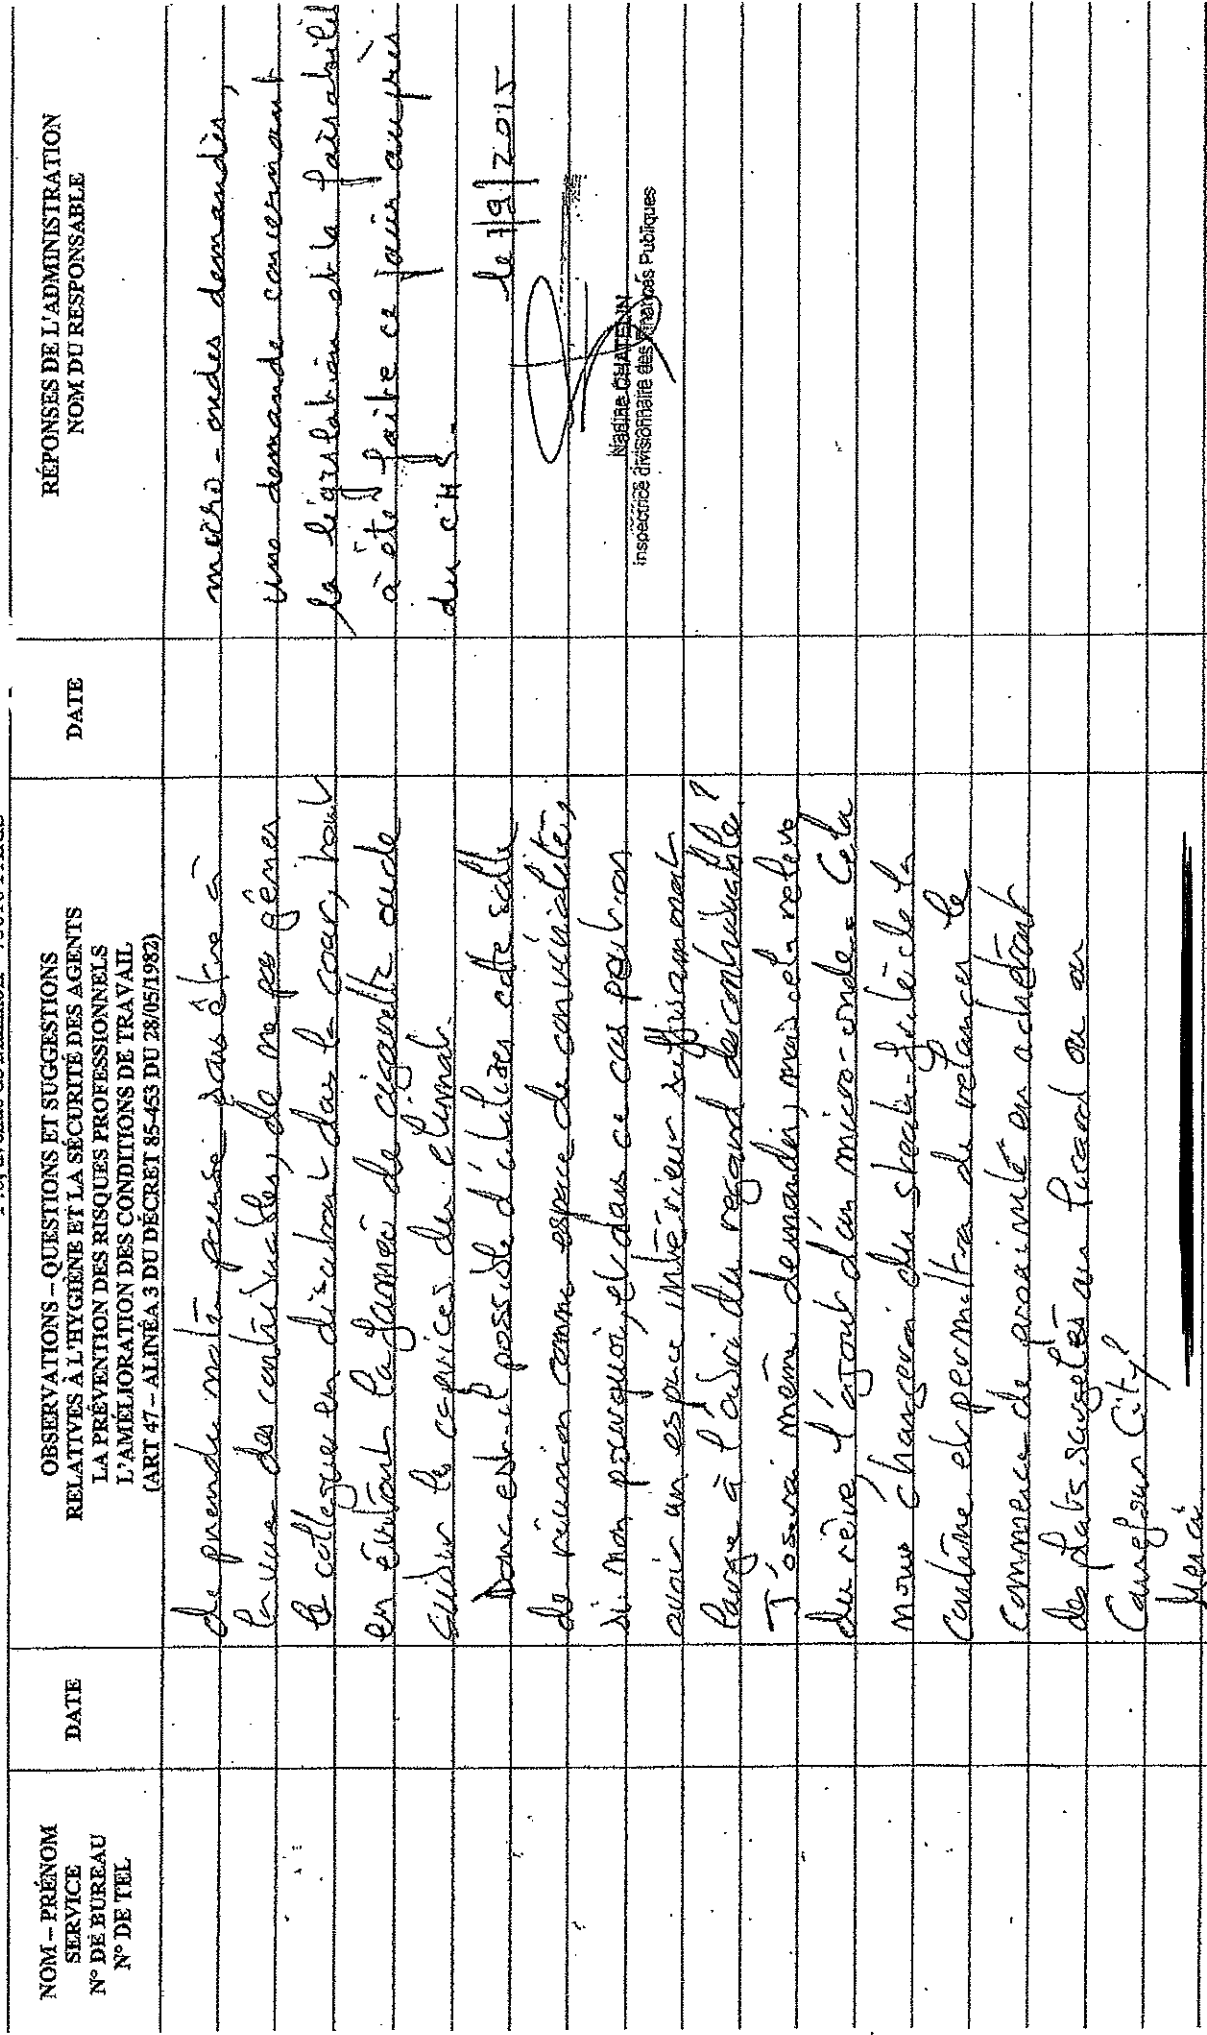 NOM – PRÉNOM
SERVICE
N° DE BUREAU
N° DE TEL
DATE
OBSERVATIONS – QUESTIONS ET SUGGESTIONS
RELATIVES À L'HYGIÈNE ET LA SÉCURITÉ DES AGENTS
LA PRÉVENTION DES RISQUES PROFESSIONNELS
L'AMÉLIORATION DES CONDITIONS DE TRAVAIL
(ART 47 – ALINÉA 3 DU DÉCRET 85-453 DU 28/05/1982)
DATE
RÉPONSES DE L'ADMINISTRATION
NOM DU RESPONSABLE
de prendre notre pause sans être à
la vue des contribuables, de ne pas gêner
le collègue en discutant dans la cour, tout
en évitant la fumée de cigarette ou de
subir le caprices du climat.
Donc est-il possible d'utiliser cette salle
de réunion comme espace de convivialité,
si non pourquoi, et dans ce cas peut-on
avoir un espace intérieur suffisamment
large à l'abri du regard des contribuable?
J'oserai même demander, mais cela relève
du rêve l'ajout d'un micro-onde. Cela
nous changerai du steak-frite de la
cantine et permettra de relancer le
commerce de proximité en achetant
des plats surgelés au Picard ou au
Carrefour City!
Merci
micro-ondes demandés,
une demande concernant
la législation et la faisabilité
à été faite ce jour auprès
du CHS.
le 7/9/2015
Nadine CHATENN
Inspectrice divisionnaire des Finances Publiques